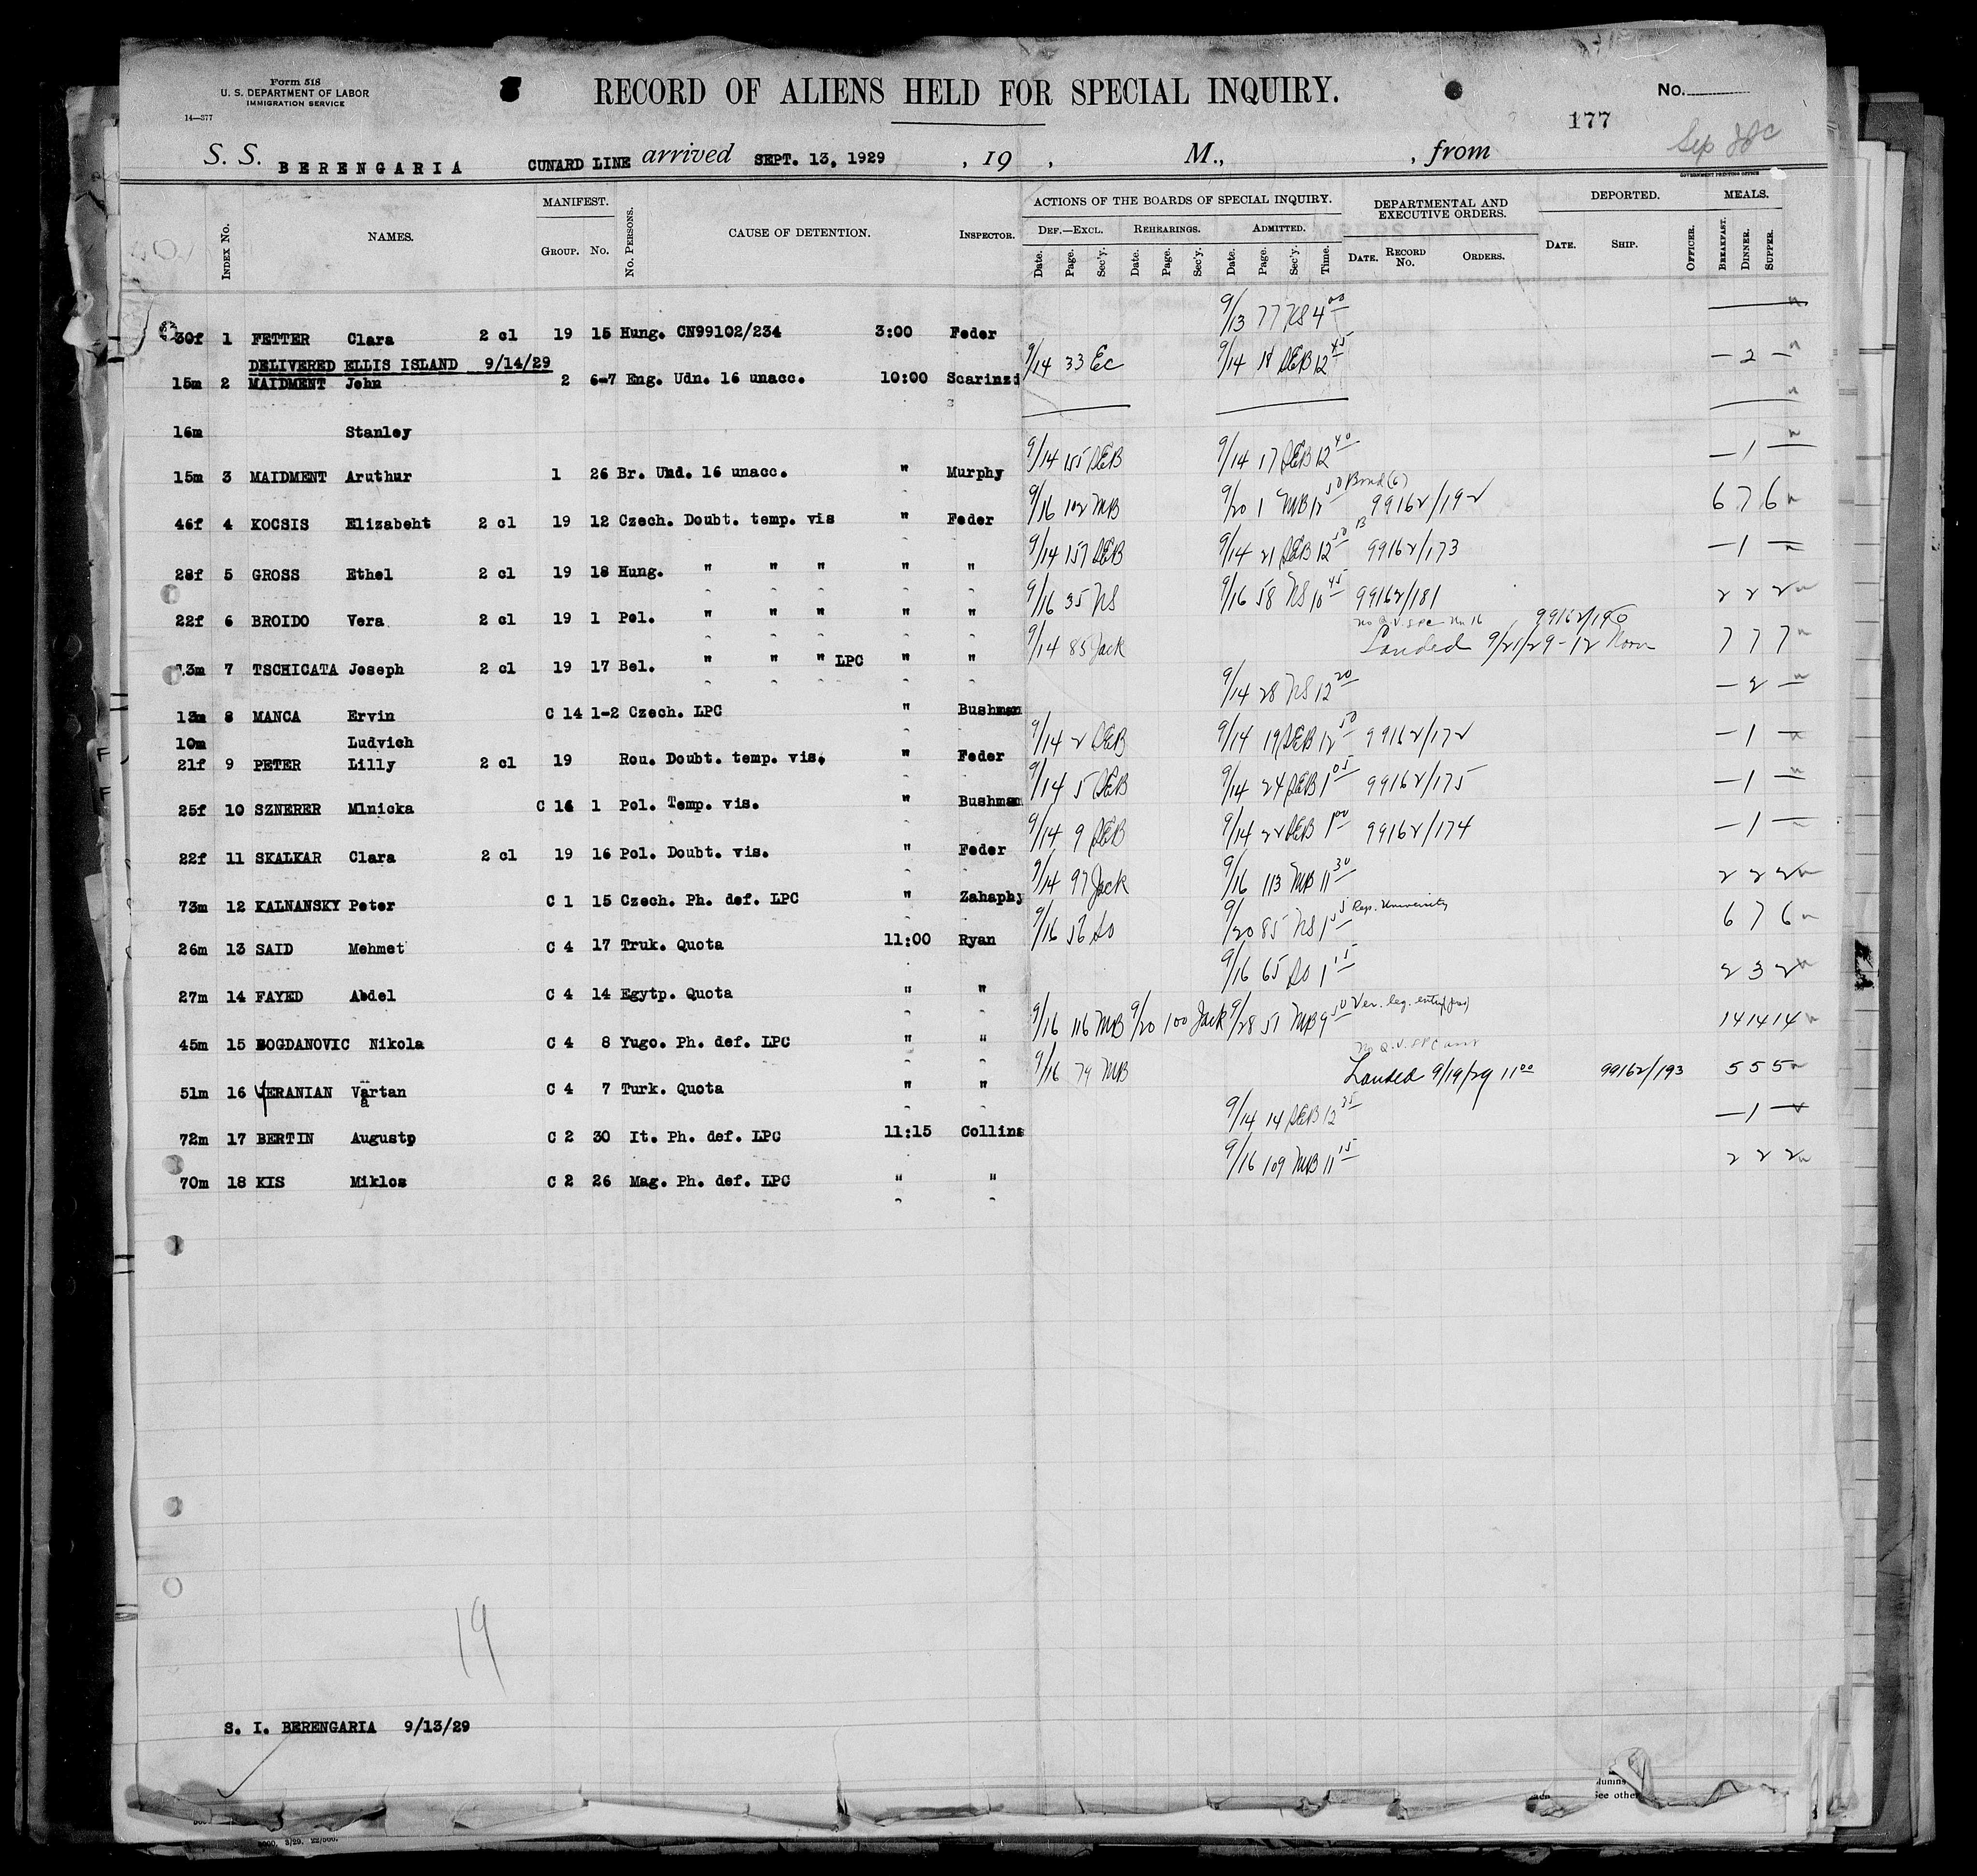 Form 518
U. S. DEPARTMENT OF LABOR
IMMIGRATION SERVICE
14—377
RECORD OF ALIENS HELD FOR SPECIAL INQUIRY.
No.
177
Sep
S. S. BERENGARIA CUNARD LINE arrived SEPT. 13, 1929 , 19 , M., , from
GOVERNMENT PRINTING OFFICE
INDEX No. NAMES. MANIFEST. GROUP. No. No. PERSONS. CAUSE OF DETENTION. INSPECTOR. ACTIONS OF THE BOARDS OF SPECIAL INQUIRY. DEPARTMENTAL AND EXECUTIVE ORDERS. DEPORTED. MEALS.
DEF.—EXCL. REHEARINGS. ADMITTED.
Date. Page. Sec'y. Date. Page. Sec'y. Date. Page. Sec'y. Time. DATE. RECORD No. ORDERS. DATE. SHIP. OFFICER. BREAKFAST. DINNER. SUPPER.
9/13 77 NS 4 00
30f 1 FETTER Clara 2 cl 19 15 Hung. CN99102/234 3:00 Feder
DELIVERED ELLIS ISLAND 9/14/29
9/14 33 Ec 9/14 18 DEB 12 45 — 2 —
15m 2 MAIDMENT John 2 6-7 Eng. Udn. 16 unacc. 10:00 Scarinzi
16m Stanley
9/14 155 DEB 9/14 17 DEB 12 40 — 1 —
15m 3 MAIDMENT Aruthur 1 26 Br. Und. 16 unacc. " Murphy
9/16 102 MB 9/20 1 MB 12 50 Bond (6) 99162/192 6 7 6
46f 4 KOCSIS Elizabeht 2 cl 19 12 Czech. Doubt. temp. vis " Feder
9/14 157 DEB 9/14 21 DEB 12 50 B 99162/173 — 1 —
28f 5 GROSS Ethel 2 cl 19 18 Hung. " " " " "
9/16 35 NS 9/16 58 NS 10 45 99162/181 2 2 2
22f 6 BROIDO Vera 2 cl 19 1 Pol. " " " " "
99162/190
9/14 85 Jack Landed 9/21/29 - 12 Noon 7 7 7
13m 7 TSCHICATA Joseph 2 cl 19 17 Bel. " " " LPC " "
9/14 28 NS 12 20 — 2 —
13m 8 MANCA Ervin C 14 1-2 Czech. LPC " Bushman
10m Ludvich
9/14 2 DEB 9/14 19 DEB 12 50 99162/172 — 1 —
21f 9 PETER Lilly 2 cl 19 Rou. Doubt. temp. vis. " Feder
9/14 5 DEB 9/14 24 DEB 1 05 99162/175 — 1 —
25f 10 SZNERER Mlnicka C 16 1 Pol. Temp. vis. " Bushman
9/14 9 DEB 9/14 22 DEB 1 00 99162/174 — 1 —
22f 11 SKALKAR Clara 2 cl 19 16 Pol. Doubt. vis. " Feder
9/14 97 Jack 9/16 113 MB 11 30 2 2 2
73m 12 KALNANSKY Peter C 1 15 Czech. Ph. def. LPC " Zahaphy
9/16 56 So 9/20 85 NS 1 55 Rep. University 6 7 6
26m 13 SAID Mehmet C 4 17 Truk. Quota 11:00 Ryan
9/16 65 So 1 15 2 3 2
27m 14 FAYED Abdel C 4 14 Egytp. Quota " "
9/16 116 MB 9/20 100 Jack 9/28 51 MB 9 50 Ver. leg. entry 14 14 14
45m 15 BOGDANOVIC Nikola C 4 8 Yugo. Ph. def. LPC " "
9/16 79 MB Landed 9/19/29 11 00 99162/193 5 5 5
51m 16 YERANIAN Vartan C 4 7 Turk. Quota " "
9/14 14 DEB 12 25 — 1 —
72m 17 BERTIN Augusto C 2 30 It. Ph. def. LPC 11:15 Collins
9/16 109 MB 11 15 2 2 2
70m 18 KIS Miklos C 2 26 Mag. Ph. def. LPC " "
19
S. I. BERENGARIA 9/13/29
see other